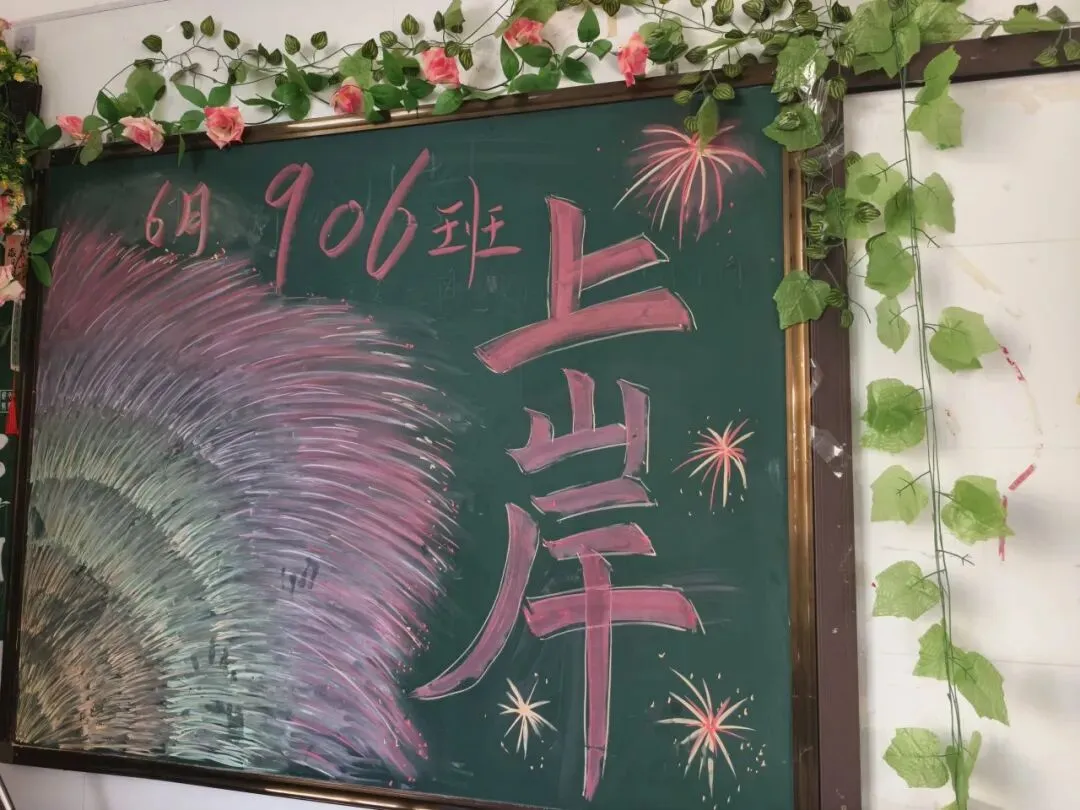 6月 906班
上岸